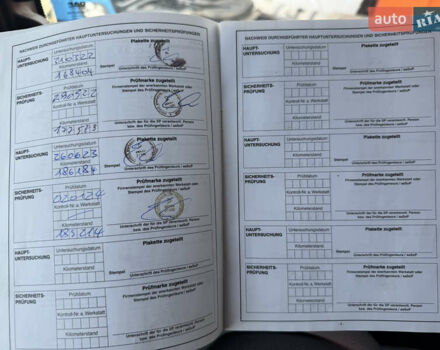 auto RIA
NACHWEIS DURCHGEFÜHRTER HAUPTUNTERSUCHUNGEN UND SICHERHEITSPRÜFUNGEN
HAUPT-
UNTERSUCHUNG
Untersuchungsdatum
Kilometerstand
168404
Plakette zugeteilt
SICHERHEITS-
PRÜFUNG
Prüfdatum
Kontroll-Nr. a. Werkstatt
Prüfmarke zugeteilt
Firmenstempel der anerkannten Werkstatt oder
Stempel des Prüfingenieurs / aaSoP
Unterschrift der für die SP verantwortl. Person
bzw. des Prüfingenieurs / aaSoP
HAUPT-
UNTERSUCHUNG
Untersuchungsdatum
260623
Kilometerstand
186184
Plakette zugeteilt
Stempel
Unterschrift des Prüfingenieurs / aaSoP
SICHERHEITS-
PRÜFUNG
Prüfdatum
020124
Kontroll-Nr. a. Werkstatt
Prüfmarke zugeteilt
Firmenstempel der anerkannten Werkstatt oder
Stempel des Prüfingenieurs / aaSoP
Unterschrift der für die SP verantwortl. Person
bzw. des Prüfingenieurs / aaSoP
HAUPT-
UNTERSUCHUNG
Untersuchungsdatum
Kilometerstand
Plakette zugeteilt
Stempel
Unterschrift des Prüfingenieurs / aaSoP
SICHERHEITS-
PRÜFUNG
Prüfdatum
Kontroll-Nr. a. Werkstatt
Kilometerstand
Prüfmarke zugeteilt
Firmenstempel der anerkannten Werkstatt oder
Stempel des Prüfingenieurs / aaSoP
Unterschrift der für die SP verantwortl. Person
bzw. des Prüfingenieurs / aaSoP
NACHWEIS DURCHGEFÜHRTER HAUPTUNTERSUCHUNGEN UND SICHERHEITSPRÜFUNGEN
HAUPT-
UNTERSUCHUNG
Untersuchungsdatum
Kilometerstand
Plakette zugeteilt
Stempel
Unterschrift des Prüfingenieurs / aaSoP
SICHERHEITS-
PRÜFUNG
Prüfdatum
Kontroll-Nr. a. Werkstatt
Kilometerstand
Prüfmarke zugeteilt
Firmenstempel der anerkannten Werkstatt oder
Stempel des Prüfingenieurs / aaSoP
Unterschrift der für die SP verantwortl. Person
bzw. des Prüfingenieurs / aaSoP
HAUPT-
UNTERSUCHUNG
Untersuchungsdatum
Kilometerstand
Plakette zugeteilt
Stempel
Unterschrift des Prüfingenieurs / aaSoP
SICHERHEITS-
PRÜFUNG
Prüfdatum
Kontroll-Nr. a. Werkstatt
Kilometerstand
Prüfmarke zugeteilt
Firmenstempel der anerkannten Werkstatt oder
Stempel des Prüfingenieurs / aaSoP
Unterschrift der für die SP verantwortl. Person
bzw. des Prüfingenieurs / aaSoP
HAUPT-
UNTERSUCHUNG
Untersuchungsdatum
Kilometerstand
Plakette zugeteilt
Stempel
Unterschrift des Prüfingenieurs / aaSoP
SICHERHEITS-
PRÜFUNG
Prüfdatum
Kontroll-Nr. a. Werkstatt
Kilometerstand
Prüfmarke zugeteilt
Firmenstempel der anerkannten Werkstatt oder
Stempel des Prüfingenieurs / aaSoP
Unterschrift der für die SP verantwortl. Person
bzw. des Prüfingenieurs / aaSoP